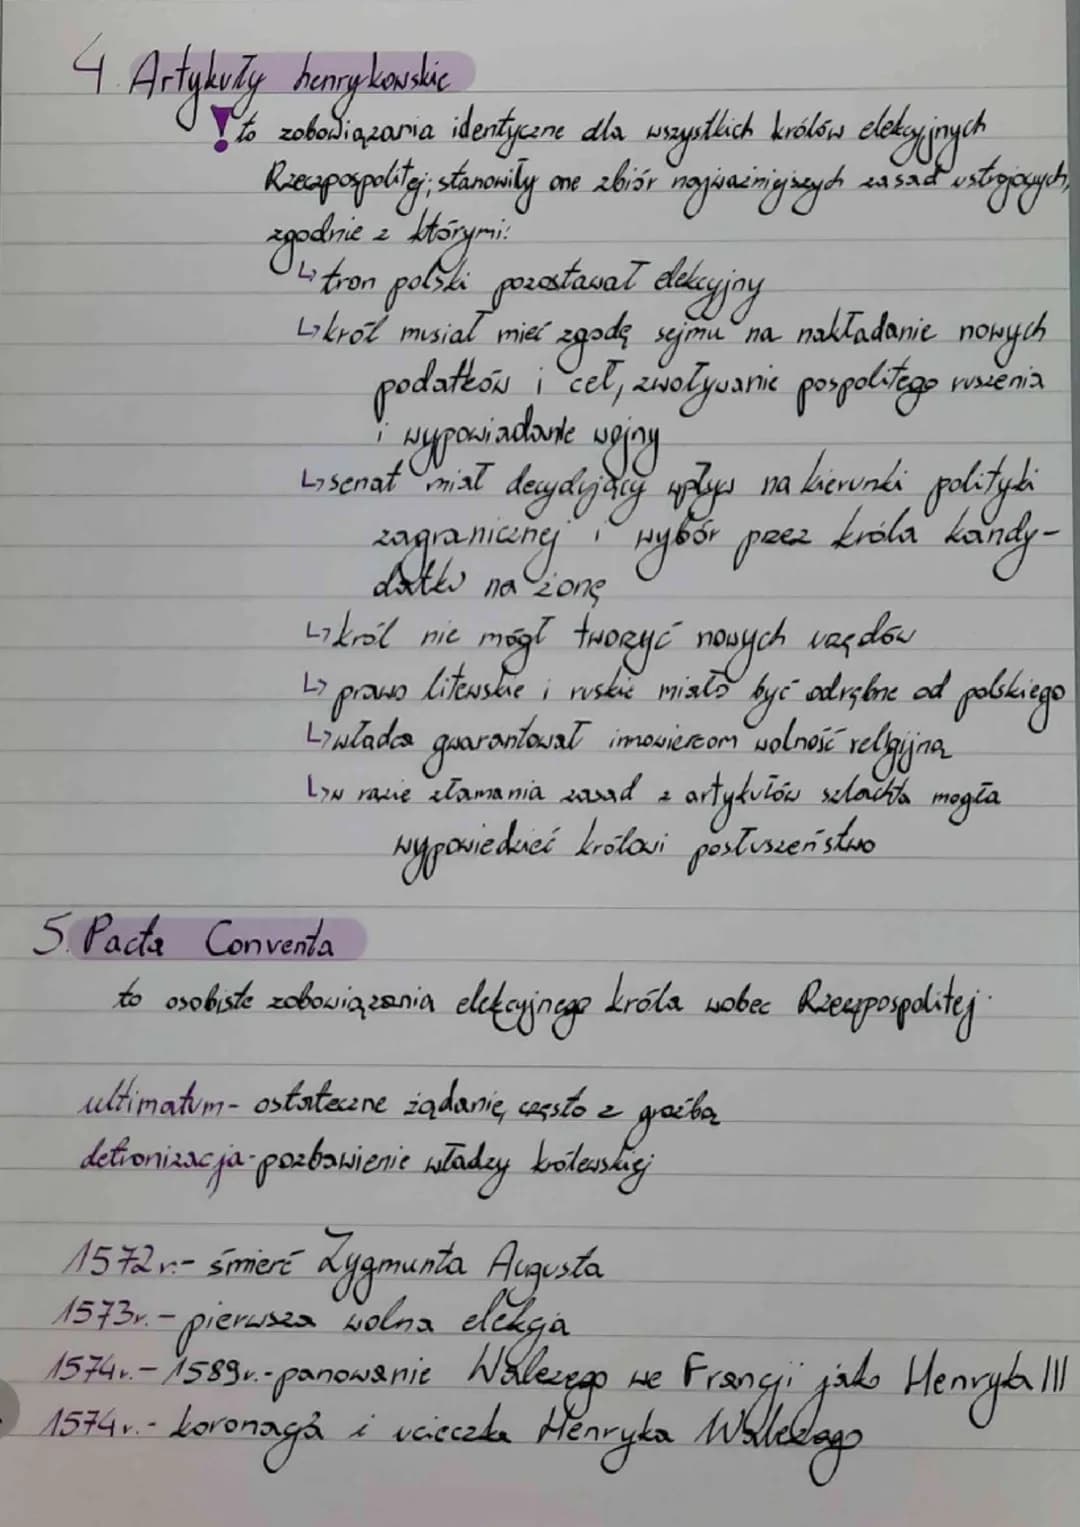 4. Artykuły henrykowskie
! to zobowiązania identyczne dla wszystkich królów elekcyjnych
Rzeczpospolitej; stanowiły one zbiór najważniejszych zasad ustrojowych,
zgodnie z którymi:
↳ tron polski pozostawał elekcyjny
↳ król musiał mieć zgodę sejmu na nakładanie nowych
podatków i ceł, zwoływanie pospolitego ruszenia
i wypowiadanie wojny
↳ senat miał decydujący wpływ na kierunki polityki
zagranicznej i wybór przez króla kandy-
datki na żonę
↳ król nie mógł tworzyć nowych urzędów
↳ prawo litewskie i ruskie miało być odrębne od polskiego
↳ władca gwarantował innowiercom wolność religijną
↳ w razie złamania zasad z artykułów szlachta mogła
wypowiedzieć królowi posłuszeństwo
5. Pacta Conventa
to osobiste zobowiązania elekcyjnego króla wobec Rzeczpospolitej
ultimatum - ostateczne żądanie, często z groźbą
detronizacja - pozbawienie władzy królewskiej
1572r. - śmierć Zygmunta Augusta
1573r. - pierwsza wolna elekcja
1574r. - 1589r. - panowanie Walezego we Francji jako Henryka III
1574r. - koronacja i ucieczka Henryka Walezego